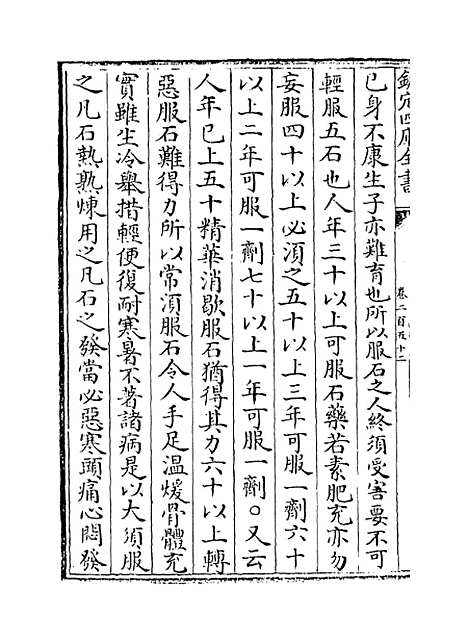 欽定四庫全書
卷二百五十二
已身不康生子亦難育也所以服石之人終須受害要不可
輕服五石也人年三十以上可服石藥若素肥充亦勿
妄服四十以上必須之五十以上三年可服一劑六十
以上二年可服一劑七十以上一年可服一劑○又云
人年已上五十精華消歇服石猶得其力六十以上轉
惡服石難得力所以常須服石令人手足温煖骨體充
實雖生冷舉措輕便復耐寒暑不著諸病是以大須服
之凡石熱熟煉用之凡石之發當必惡寒頭痛心悶發